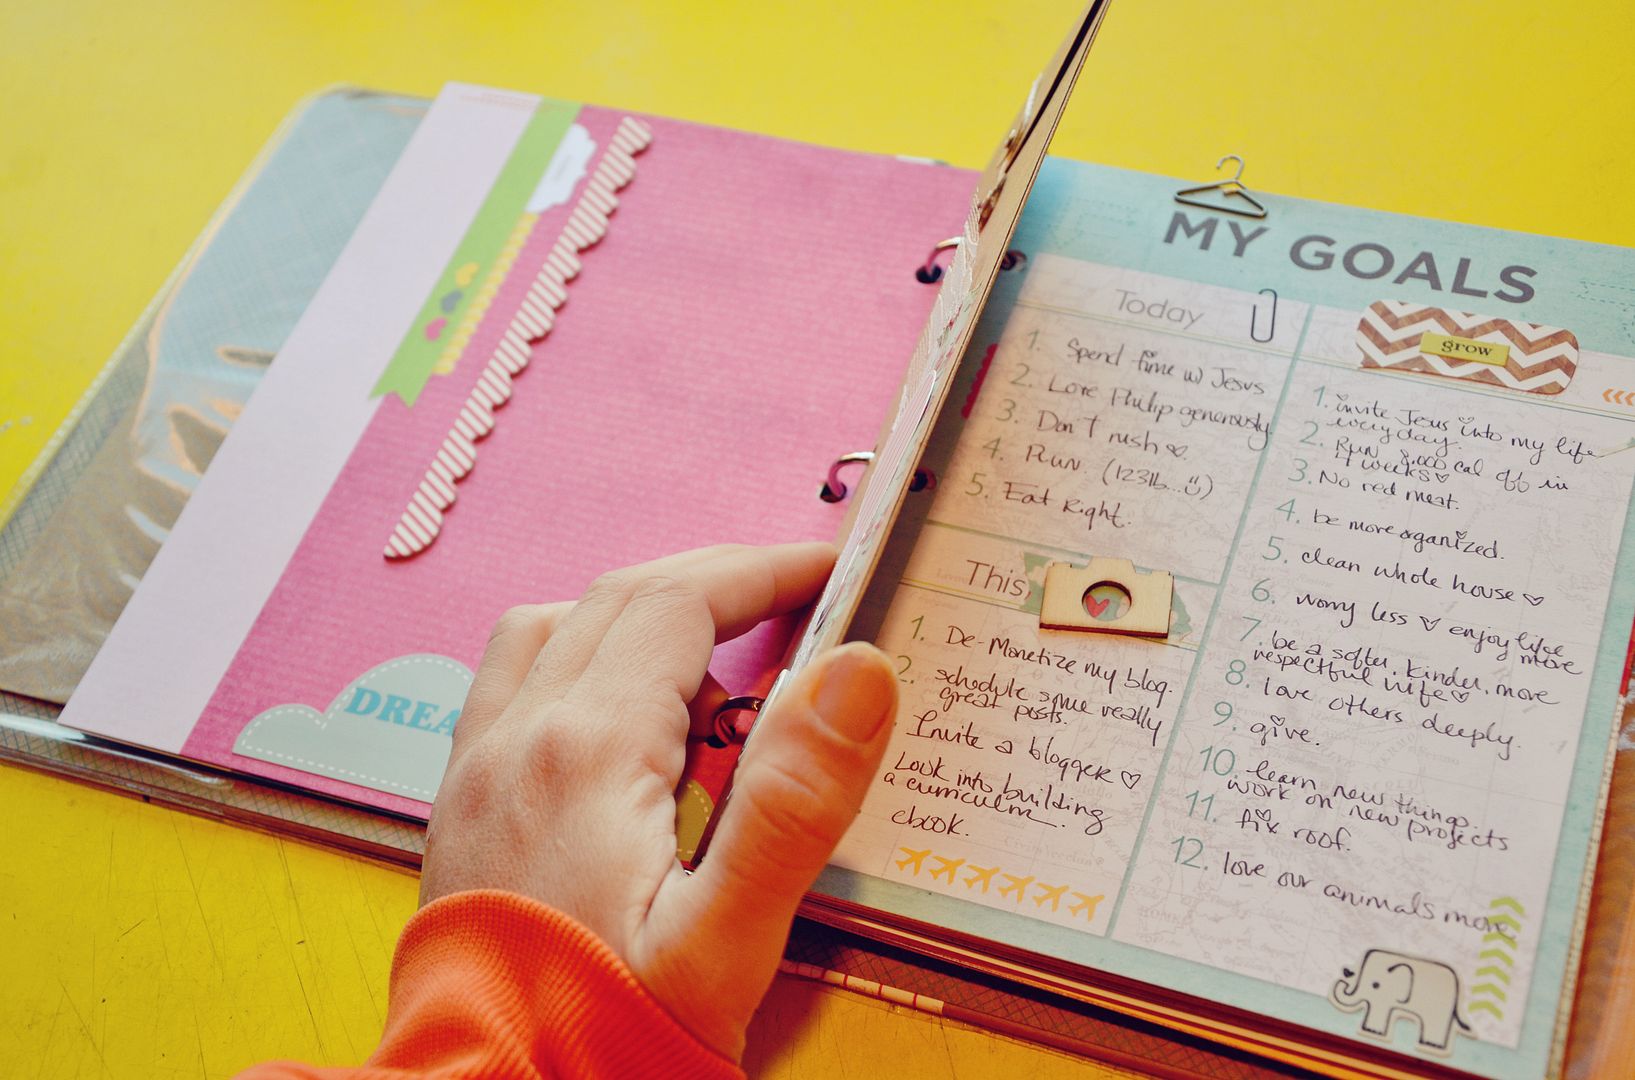 DREA
MY GOALS
Today
1. Spend time w/ Jesus
2. Love Philip generously.
3. Don't rush ♡.
4. Run. (123lb...☺)
5. Eat Right.
This
1. De-Monetize my blog.
2. schedule some really
great posts.
Invite a blogger ♡
Look into building
a curriculm.
ebook.
grow
1. invite Jesus into my life
everyday.
2. Run 8,000 cal off in
4 weeks ♡
3. No red meat.
4. be more organized.
5. clean whole house ♡
6. worry less ♡ enjoy life
more
7. be a softer, kinder, more
respectful wife ♡
8. love others deeply.
9. give.
10. learn new things.
work on new projects
11. fix roof.
12. love our animals more.